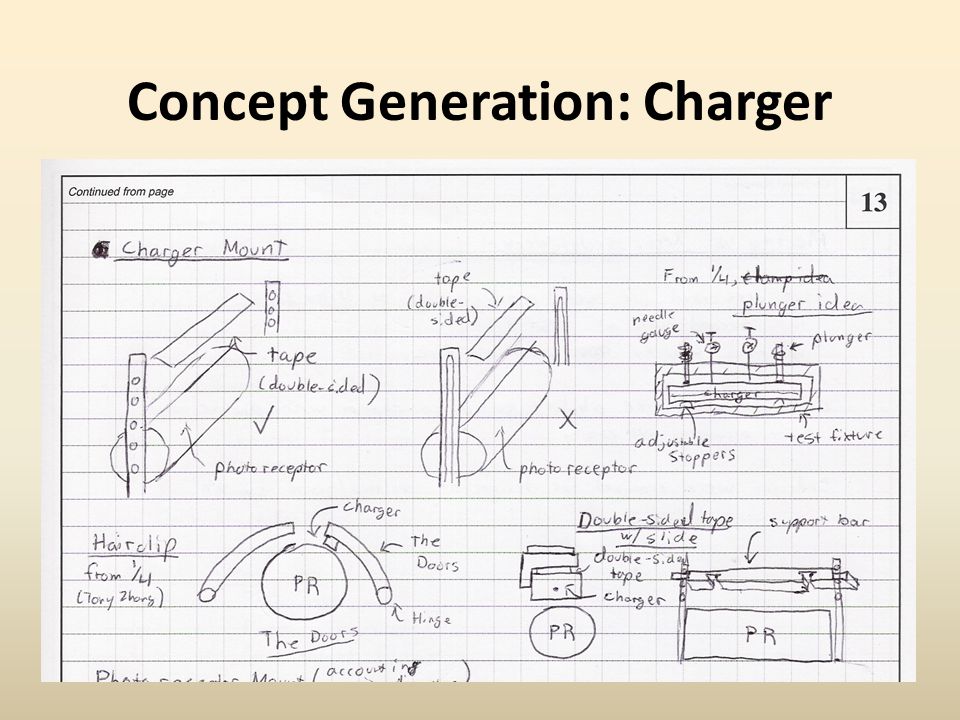 Concept Generation: Charger
Continued from page
13
Charger Mount
tape
(double-sided)
photo receptor
tape
(double-
sided)
X
photo receptor
From 1/4, champ idea
plunger idea
needle
gauge
plunger
charger
adjustable
stoppers
test fixture
Hairclip
from 1/4
(Tory Zhang)
charger
The
Doors
PR
Hinge
The Doors
Double-sided tape
w/ slide
double-sided
tape
charger
PR
support bar
PR
Photo receptor Mount (accounting